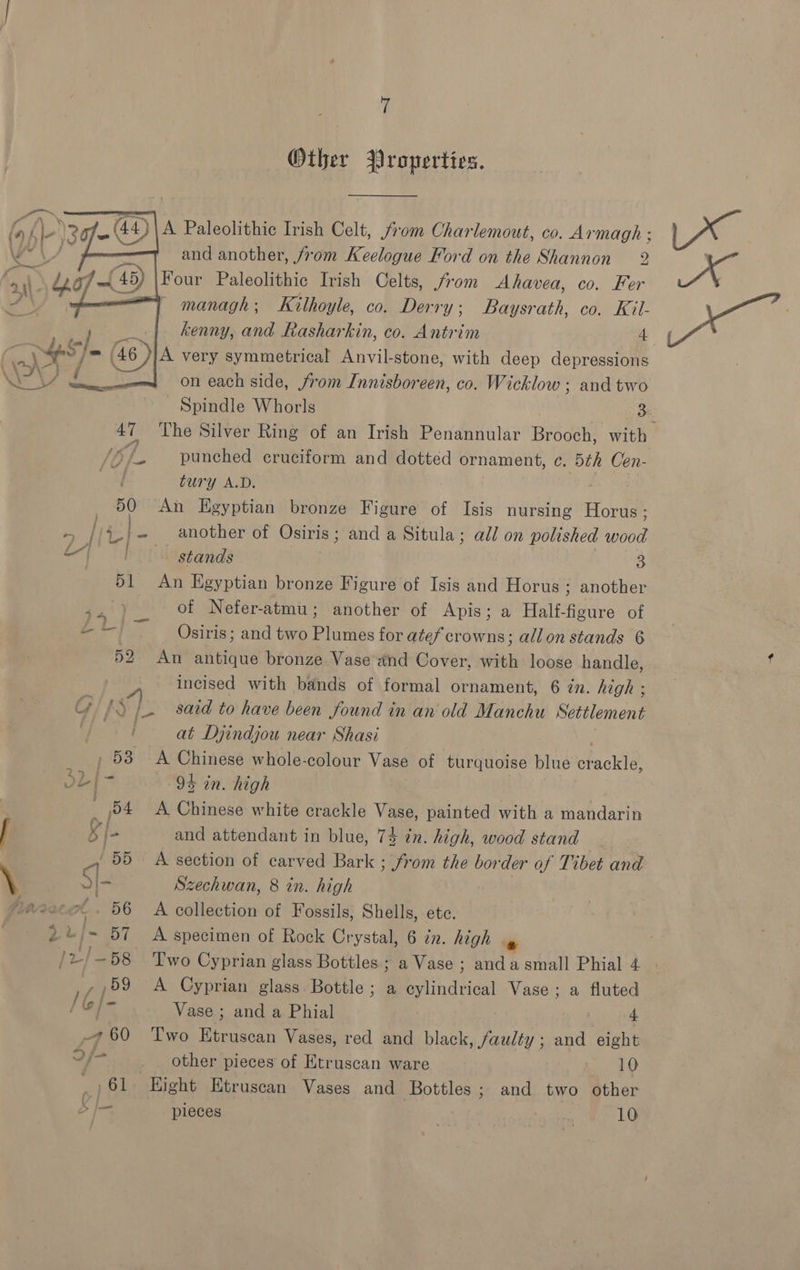 7
Other Properties.
30/- 44 A Paleolithic Irish Celt, from Charlemout, co. Armagh;
and another, from Keelogue Ford on the Shannon 2
45 Four Paleolithic Irish Celts, from Ahavea, co. Fer
managh; Kilhoyle, co. Derry; Baysrath, co. Kil-
kenny, and Rasharkin, co. Antrim 4
46 A very symmetrical Anvil-stone, with deep depressions
on each side, from Innisboreen, co. Wicklow; and two
Spindle Whorls 3
47 The Silver Ring of an Irish Penannular Brooch, with
punched cruciform and dotted ornament, c. 5th Cen-
tury A.D.
50 An Egyptian bronze Figure of Isis nursing Horus;
another of Osiris; and a Situla; all on polished wood
stands 3
51 An Egyptian bronze Figure of Isis and Horus; another
of Nefer-atmu; another of Apis; a Half-figure of
Osiris; and two Plumes for atef crowns; all on stands 6
52 An antique bronze Vase and Cover, with loose handle,
incised with bands of formal ornament, 6 in. high;
said to have been found in an old Manchu Settlement
at Djindjou near Shasi
53 A Chinese whole-colour Vase of turquoise blue crackle,
32/- 9½ in. high
54 A Chinese white crackle Vase, painted with a mandarin
8/- and attendant in blue, 7½ in. high, wood stand
55 A section of carved Bark; from the border of Tibet and
5/- Szechwan, 8 in. high
56 A collection of Fossils, Shells, etc.
22/- 57 A specimen of Rock Crystal, 6 in. high
12/- 58 Two Cyprian glass Bottles; a Vase; and a small Phial 4
59 A Cyprian glass Bottle; a cylindrical Vase; a fluted
16/- Vase; and a Phial 4
60 Two Etruscan Vases, red and black, faulty; and eight
other pieces of Etruscan ware 10
61 Eight Etruscan Vases and Bottles; and two other
pieces 10